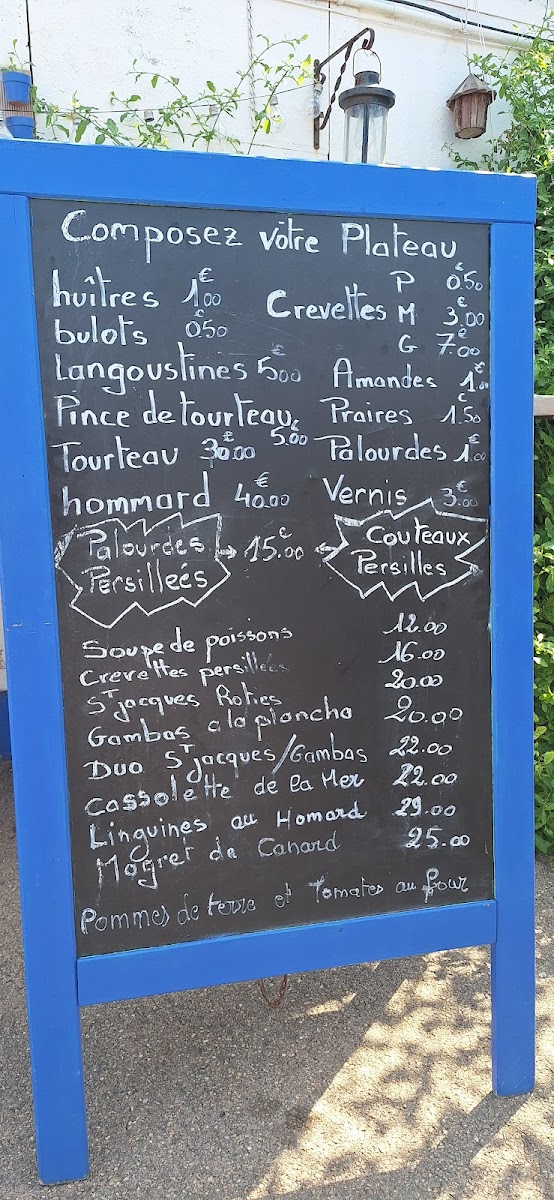 Composez vôtre Plateau
huîtres 1€00
bulots 0€50
Langoustines 5€00
Pince de tourteau 5€00
Tourteau 30€00
hommard 40€00
Crevettes P 0€50
M 3€00
G 7€00
Amandes 1€00
Praires 1€50
Palourdes 1€00
Vernis 3€00
Palourdes
Persilleés
15€00
Couteaux
Persilles
Soupe de poissons 12.00
Crevettes persillées 16.00
ST jacques Roties 20.00
Gambas a la plancha 20.00
Duo ST jacques/Gambas 22.00
Cassolette de la Mer 22.00
Linguines au Homard 29.00
Magret de Canard 25.00
Pommes de terre et Tomates au four